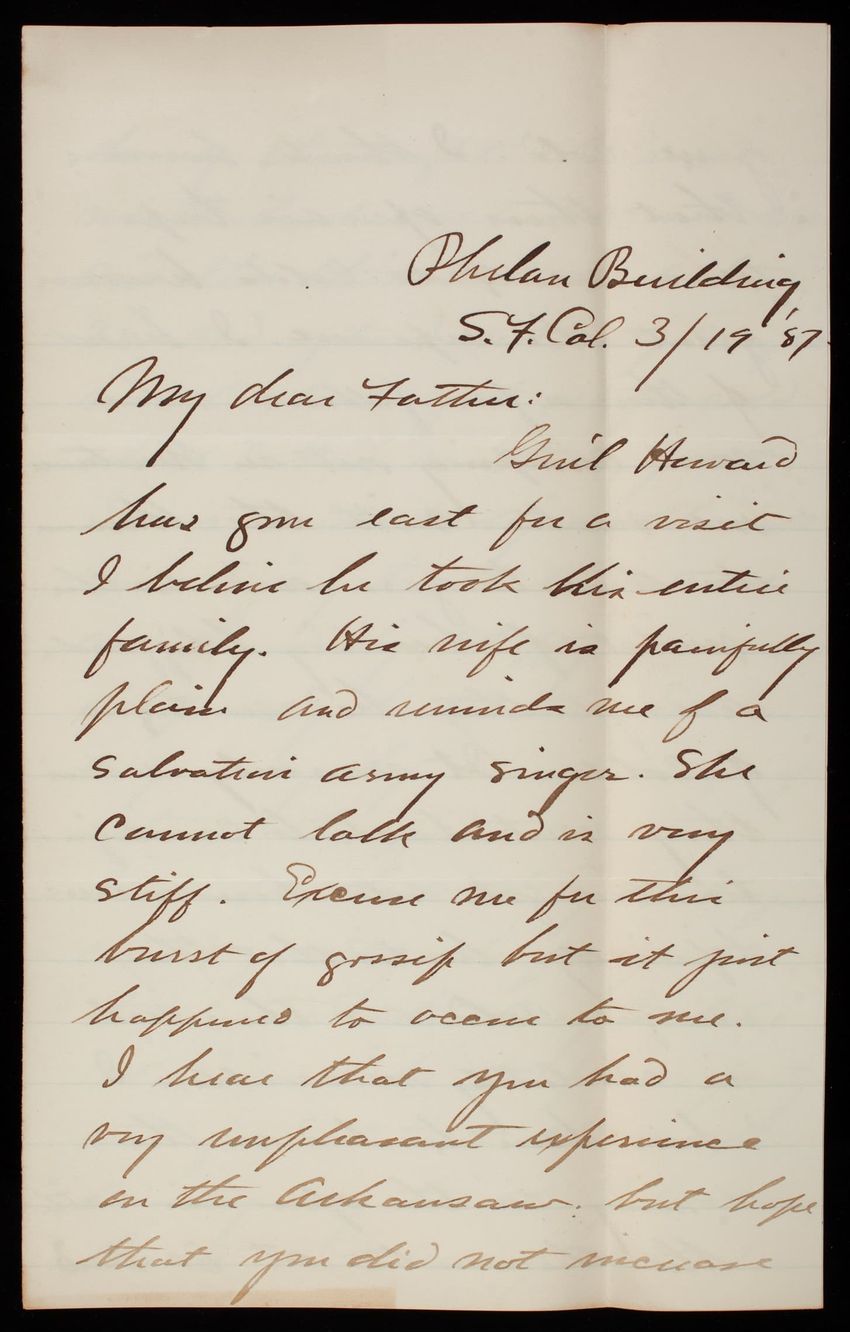 Phelan Building,
S.F. Cal. 3/19 '87.
My dear Father:
Gen'l Howard
has gone east for a visit
I believe he took his entire
family. His wife is painfully
plain and reminds me of a
Salvation army singer. She
cannot talk and is very
stiff. Excuse me for this
burst of gossip but it just
happened to occur to me.
I hear that you had a
very unpleasant experience
on the Arkansaw. but hope
that you did not increase